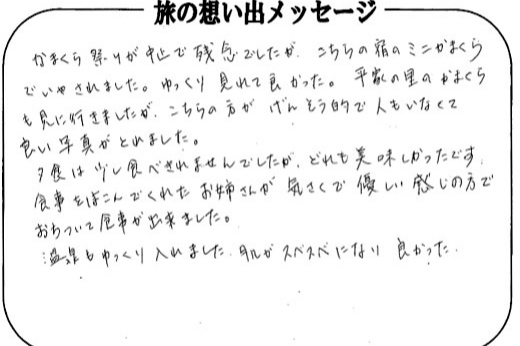 旅の想い出メッセージ
かまくら祭りが中止で残念でしたが、こちらの宿のミニかまくら
でいやされました。ゆっくり見れて良かった。平家の里のかまくら
も見に行きましたが、こちらの方が げんそう的で人もいなくて
良い写真がとれました。
夕食は少し食べきれませんでしたが、どれも美味しかったです。
食事をはこんでくれたお姉さんが気さくで優しい感じの方で
おちついて食事が出来ました。
温泉もゆっくり入れました。肌がスベスベになり良かった。